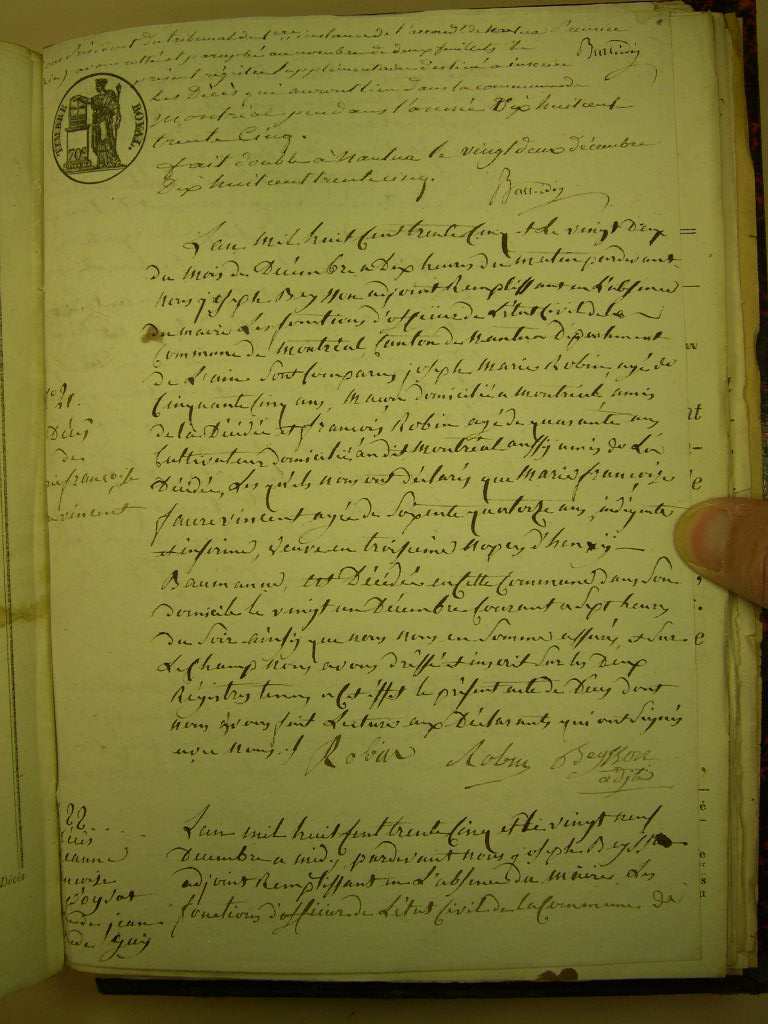 Président du tribunal de 1ère instance de l'arrond.t de Nantua
au nombre de deux feuillets le
présent registre supplémentaire destiné à inscrire
Les Décès qui auront lieu dans la commune de
montréal pendant l'année Dix huit cent
trente Cinq.
fait double à Nantua le vingt deux décembre
Dix huit cent trente cinq.
TIMBRE ROYAL
70c
L'an mil huit Cent trente Cinq et le vingt Deux
du mois de Décembre a Dix heures du matin pardevant
nous joseph Beysson adjoint Remplissant en L'absence
du maire Les fonctions d'officier de L'état Civil de la
Commune de Montréal Canton de Nantua Département
de L'ain Sont Comparus joseph Marie Robin, agé de
Cinquante Cinq ans, maçon domicilié a montréal amis
de la Décédée et françois Robin agé de quarante ans
Cultivateur domicilié au dit Montréal aussi amis de La
Décédée, Les quels nous ont déclarés que Marie françoise
faure vincent agée de Soixente quatorze ans, indigente
et infirme, veuve en troisieme nopces d'henry
Baumanne, est Décédée en Cette Commune dans Son
domicile le vingt un Décembre Courant a Sept heures
du Soir ainsy que nous nous en Somme assurés, et Sur
Le Champ nous avons dressé et inscrit Sur les Deux
Régistres tenus a Cet effet le présent acte de Décès dont
nous avons fait Lecture aux Déclarants qui ont Signés
avec nous.
21.
Décès
de
françoise
vincent
Robin Robin Beysson
adjt
22
Décès
jeanne
jean
Guy
L'an mil huit Cent trente Cinq et le vingt neuf
Décembre a midy, pardevant nous joseph Beysson
adjoint Remplissant en L'absence du maire Les
fonctions d'officier de L'état Civil de la Commune de